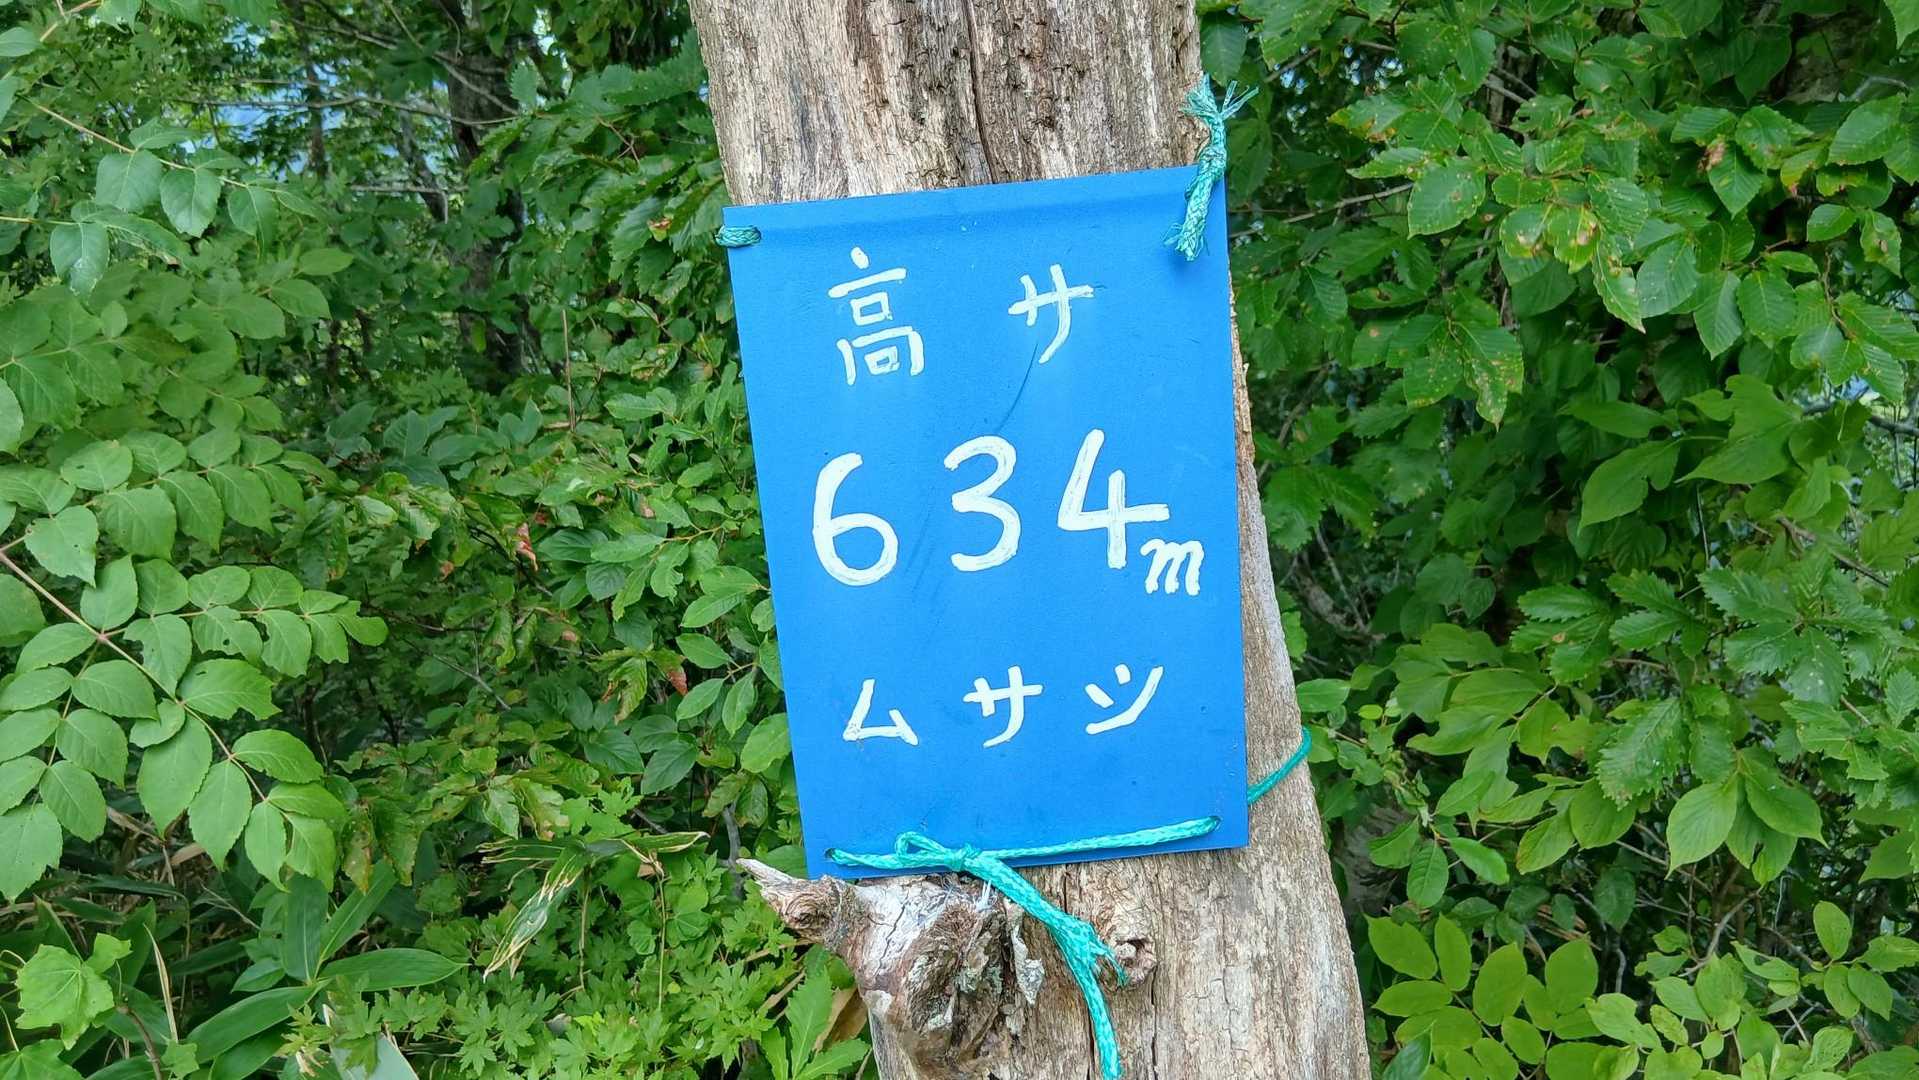 高サ
634m
ムサシ